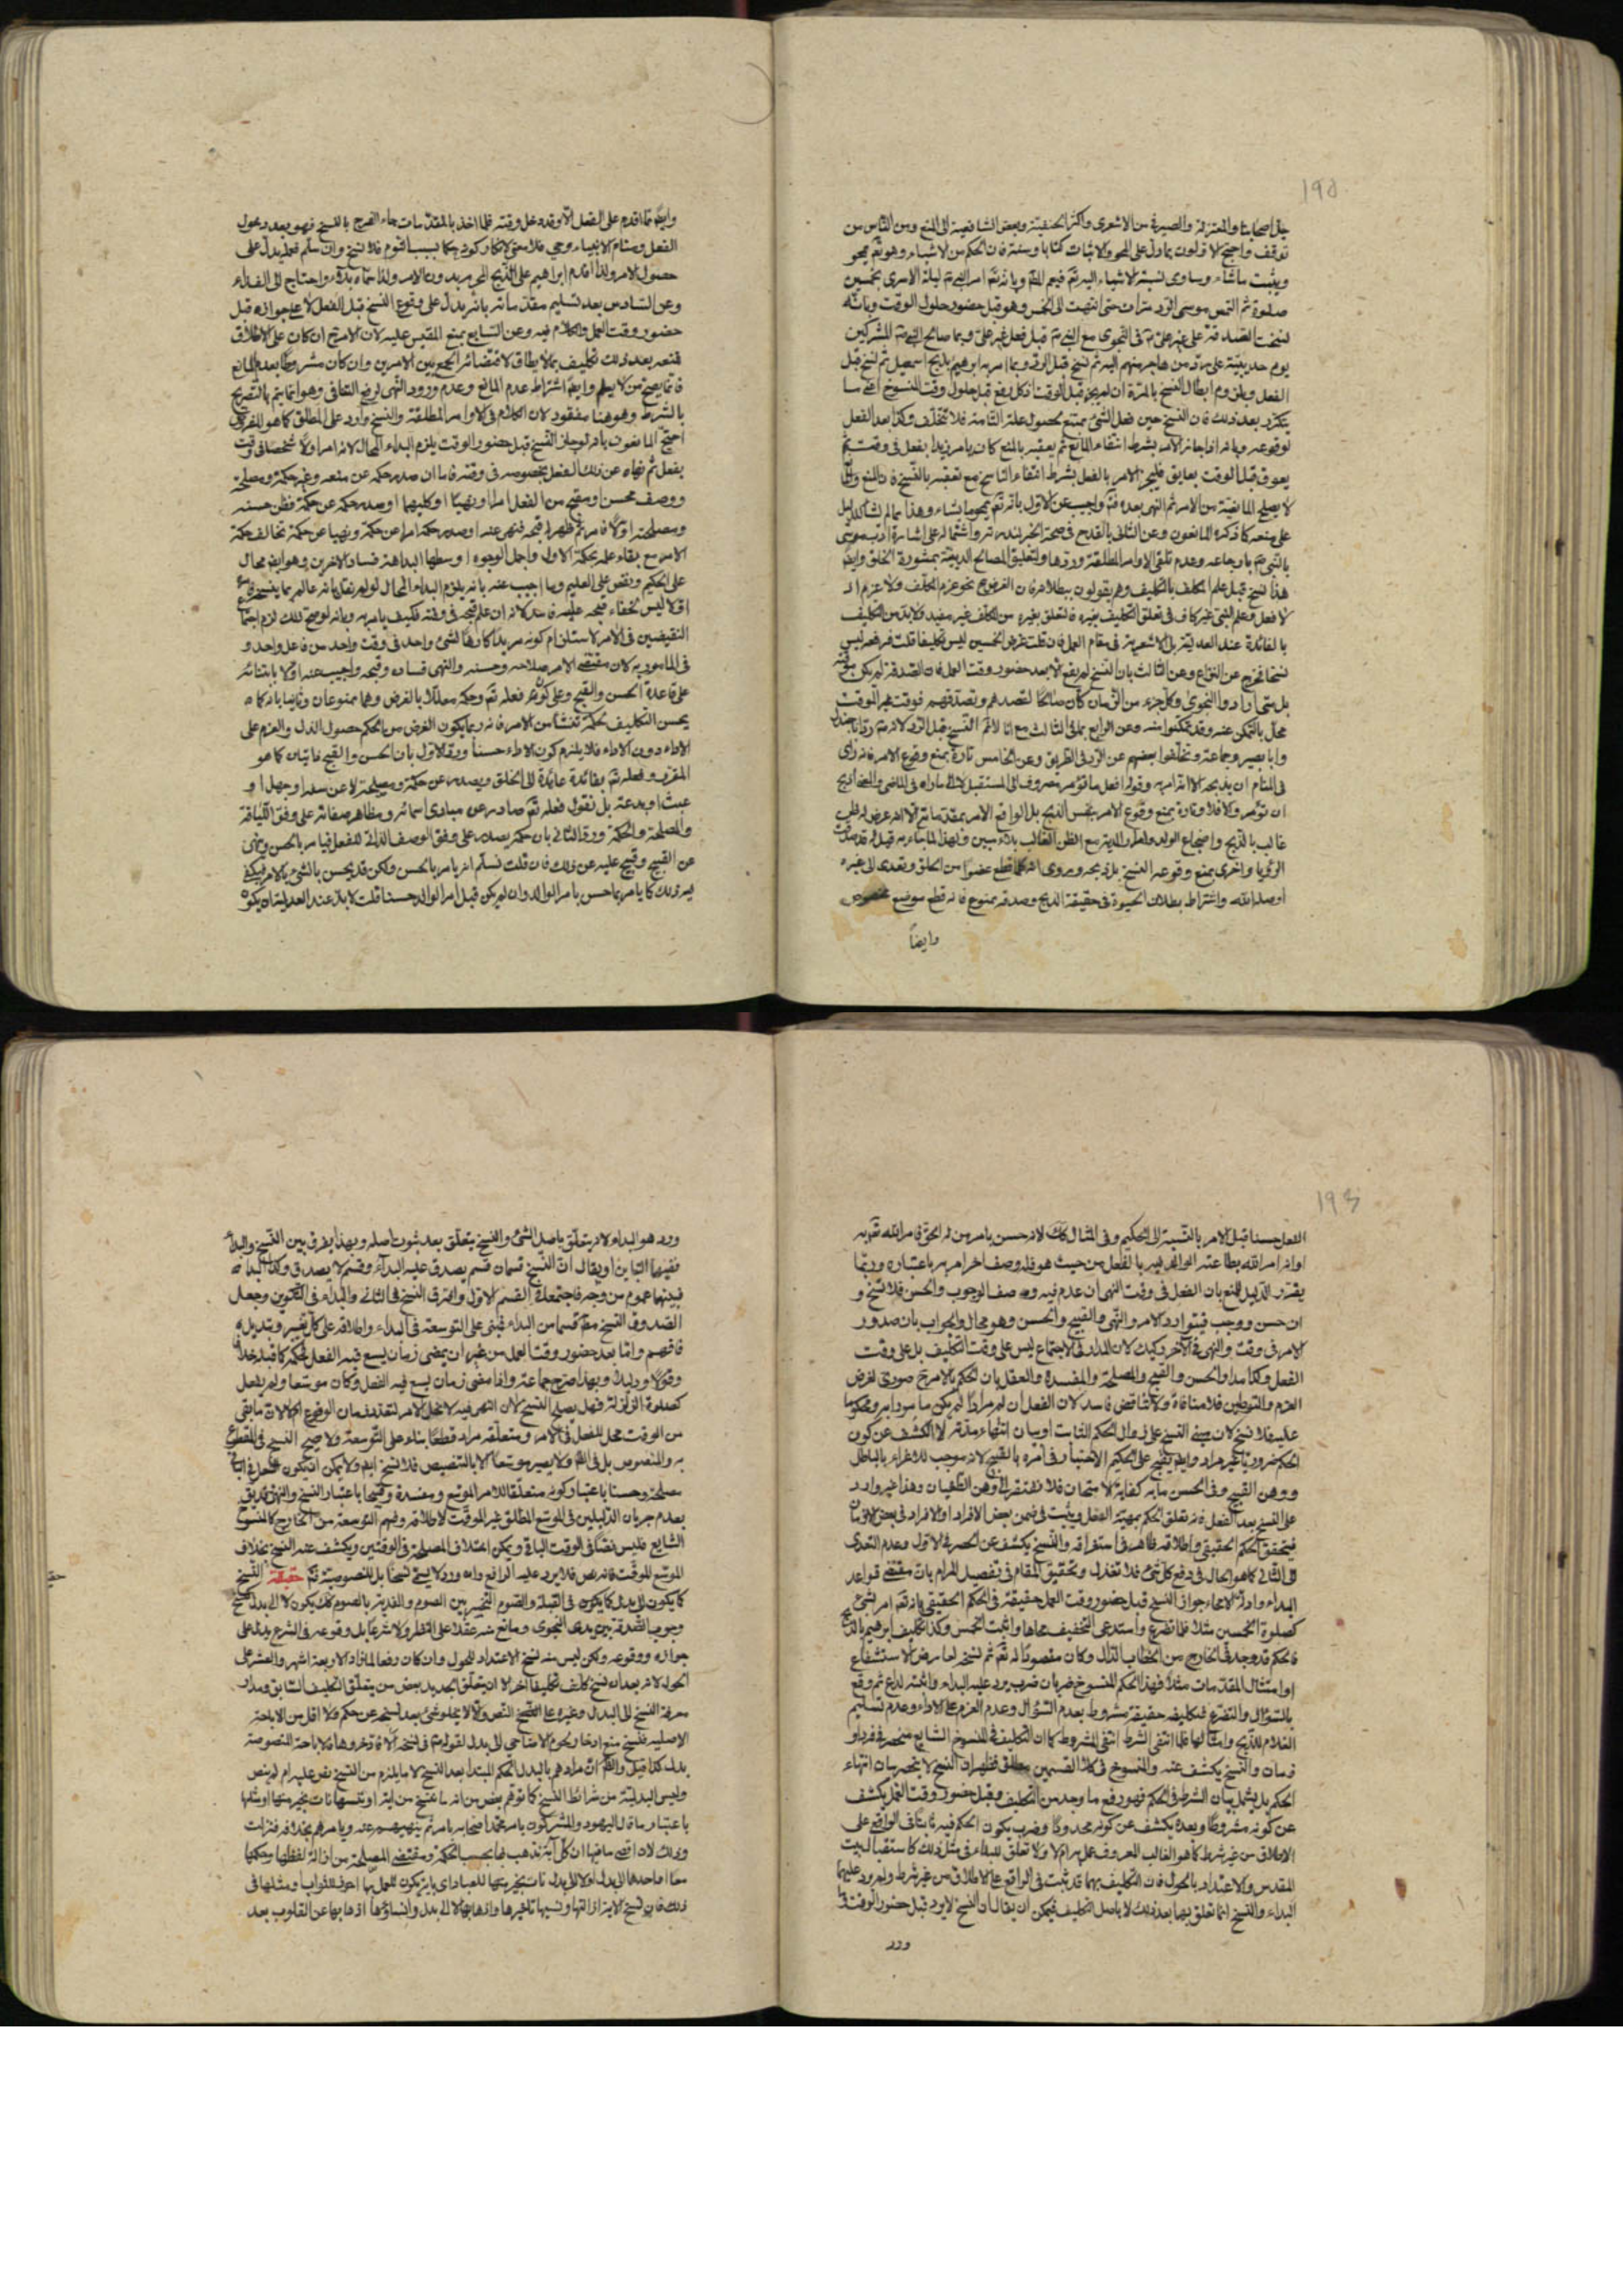 ١٩٥
جل اصحابنا والمعتزلة والصيرفى من الاشعرى واكثر الحنفية وبعض الشافعية الى المنع ومن الناس من
توقف واحتج الاولون بما دل على المحو والاثبات كتابا وسنة فان الحكم من الاشياء وهو تع يمحو
ويثبت ما شاء وتساوى نسبة الاشياء اليه تع فيعم الكل وبانه تع امر النبى ص ليلة الاسرى بخمسين
صلوة ثم التمس موسى الرد مرات حتى انتهت الى الخمس وهو قبل حضور حلول الوقت وبانه
نسخت الصدقة على غير على ع فى النجوى مع النبى ص قبل فعل غير على وبما صالح النبى ص المشركين
يوم حديبية على رد من هاجر منهم اليه ثم نسخ قبل الرد وبما امر به ابراهيم بذبح اسمعيل ثم نسخ قبل
الفعل وبلزوم ابطال النسخ بالمرة ان لم يجز قبل الوقت اذ كل رفع قبل حلول وقت المنسوخ اعنى ما
يتكرر بعد ذلك فان النسخ حين فعل الشئ ممتنع لحصول علته التامة فلا تتخلف وكذا بعد الفعل
لوقوعه وبانه اذا جاز الامر بشرط انتفاء المانع ثم يعقبه بالمنع كان يامر زيدا بفعل فى وقت ثم
يعوق قبل الوقت بعايق فليجز الامر بالفعل بشرط انتفاء الناسخ مع تعقبه بالنسخ فان المنع
لا يصلح المانعية من الامر ثم النهى بعده واجيب عن الاول بانه تع يمحو ما يشاء وهذا مما لم يشأ لدليل
على منعه كما ذكره المانعون وعن الثانى بالقدح فى صحة الخبر لندرته واشتماله على اشارة ادب موسى
بالنبى ص بارجاعه وعدم تلقى الاوامر المطلقة وردها وتعليق المصالح الدينية بمشورة الخلق وايضا
هذا نسخ قبل علم المكلف بالتكليف وهم يقولون ببطلانه فان الغرض ح نحو عزم المكلف ولا عزم اذ
لا فعل وعلم النبى غير كاف فى تعلق التكليف بغيره فالتعلق بغيره من المكلف غير مفيد فلا بد من التكليف
بالفائدة عند العدلية بل الاشعرية فى مقام العمل فان قلت عرض الخمسين ليس تكليفا قلت فرفعه ليس
نسخا فخرج عن النزاع وعن الثالث بان النسخ لم يقع الا بعد حضور وقت العمل فان الصدقة لم يكن موقتة
بل متى ارادوا النجوى وكل جزء من الزمان كان صالحا لقصدهم وتصدقهم فوقت غير الموقت
محل بالتمكن عنه وقد تمكنوا منه وعن الرابع بما فى الثالث مع انا لا نسلم النسخ قبل الرد لانه ص رد ابا جندل
وابا بصير وجماعة وتخلفوا بعضهم عن الرد فى الطريق وعن الخامس تارة بمنع وقوع الامر فانه راى
فى المنام ان يذبحه لا انه امر به وقوله افعل ما تؤمر مصروف الى المستقبل لا الى ما راه فى الماضى والمعنى اذبح
ان تؤمر والا فلا وتارة بمنع وقوع الامر بنفس الذبح بل الواقع الامر بمقدماته الا انه عرض له ظن
غالب بالذبح واضجاع الولد وامرار المدية مع الظن الغالب بلاء مبين ولهذا لما جاءه قيل له قد صدقت
الرؤيا واخرى بمنع وقوعه النسخ بل ذبحه وروى انه كلما قطع عضوا من الحلق وتعدى الى غيره
اوصله الله واشتراط بطلان الحيوة فى حقيقة الذبح وصدقه ممنوع فانه قطع موضع مخصوص
وايضا
وايضا ما اقدم على الفعل الا وقد دخل وقته فلما اخذ بالمقدمات جاء الفرج بالنسخ فهو بعد دخول
الفعل ومنام الانبياء وحى فلا معنى لانكار كونه حكما بسبب النوم فلا نسخ وان سلم فعله يدل على
حصول الامر ولذا اقدم ابراهيم على الذبح المحرم بدون الامر ولذا سماه بلاء واحتاج الى الفداء
وعن السادس بعد تسليم مقدماته بانه يدل على وقوع النسخ قبل الفعل لا على جوازه قبل
حضور وقت العمل والكلام فيه وعن السابع بمنع المقيس عليه لان الامر ح ان كان على الاطلاق
فمنعه بعد ذلك تكليف بما لا يطاق لاقتضائه الجمع بين الامرين وان كان مشروطا بعدم المانع
فانما يصح من لا يعلم وايضا اشتراط عدم المانع وعدم ورود النهى لرفع التنافى وهو انما يتم بالتصريح
بالشرط وهو هنا مفقود لان الكلام فى الاوامر المطلقة والنسخ وارد على المطلق كما هو المفروض
احتج المانعون بانه لو جاز النسخ قبل حضور الوقت يلزم البداء المحال لانه امر اولا شخصا فى وقت
بفعل ثم نهاه عن ذلك الفعل بخصوصه فى وقته فاما ان صدر حكمه عن منعه وغير حكمة ومصلحة
ووصف محسن او مقبح من الفعل امرا او نهيا او كليهما او صدر حكمه عن حكمة فظن حسنه
ومصلحته اولا فامر ثم ظهر له قبحه فنهى عنه او صدر حكمه امرا عن حكمة ونهيا عن حكمة تخالف حكمة
الامر مع بقاء علمه بحكمة الاول واجمل الوجوه اوسطها البداهة فساد الاخرين وهو ايضا محال
على الحكيم ونقص على العليم وما اجيب عنه بانه يلزم البداء المحال لو لم نقل بانه عالم بما ينسخه
اولا ليس لخفاء قبحه عليه فاسد لانه ان علم قبحه فى وقته فكيف يامر به وبانه لو صح ذلك لزم اجتماع
النقيضين فى الامر لاستلزام كونه مريدا كارها لشئ واحد فى وقت واحد من فاعل واحد و
فى المامور به كان مقتضى الامر صلاحه وحسنه والنهى فساده وقبحه واجيب عنه اولا بابتنائه
على قاعدة الحسن والقبح وعلى كون فعله تع وحكمه معللا بالغرض وهما ممنوعان وثانيا بانه كما
يحسن التكليف لحكمة تنشا من الامر فانه ربما يكون الغرض من الحكم حصول الذل والعزم على
الاداء دون الاداء فلا يلزم كون الاداء حسنا ورد الاول بان الحسن والقبح ذاتيان كما هو
المقرر وفعله تع بفائدة عائدة الى الخلق ويصدر عن حكمة ومصلحة لا عن سفه او جهل او
عبث او بدعة بل نقول فعله تع صادر عن مبادى اسمائه ومظاهر صفاته على وفق اللياقة
والمصلحة والحكمة ورد الثانى بان حكمه يصدر على وفق الوصف الذاتى للفعل فيامر بالحسن وينهى
عن القبيح وقبح عليه عن ذلك فان قلت نسلم انه يامر بالحسن ولكن قد يحسن بالشئ بالامر فيكفى
فيه ذلك كما يامر بما حسن بامر الوالد وان لم يكن قبل امر الوالد حسنا قلت لا بد عند العدلية ان يكون
١٩٦
الفعل حسنا قبل الامر بالنسبة الى الحكيم وفى المثال كذلك لانه حسن بامر من له الحق فامر الله تع به
او انه امر الله بطاعة الوالد فيه بالفعل من حيث هو فله وصف اخر امر به باعتباره وربما
يقرر الدليل للمنع بان الفعل فى وقت النهى ان عدم فيه وصف الوجوب والحسن فلا نسخ و
ان حسن ووجب فيتوارد الامر والنهى والقبح والحسن وهو محال والجواب بان صدور
الامر فى وقت والنهى فى الآخر ركيك لان المدار فى الاجتماع ليس على وقت التكليف بل على وقت
الفعل وكذا مدار الحسن والقبح والمصلحة والمفسدة والعقل بان الحكم بالامر ح صورى لغرض
العزم والتوطين فلا منافاة ولا تناقض فاسد لان الفعل ان لم مرادا لم يكن مامورا به ومحكوما
عليه فلا نسخ لان مبنى النسخ على زوال الحكم الثابت او بيان انتهاء مدته لا الكشف عن كون
الحكم ضروريا غير مراد وايضا يقبح على الحكيم الاختبار فى امره بالقبيح لانه موجب للاغراء بالباطل
ووهن القبيح وفى الحسن ما به كفاية الامتحان فلا نفتقر الى وهن الطغيان وهذا غير وارد
على النسخ بعد الفعل فانه تعلق الحكم بمهية الفعل ويثبت فى ضمن بعض الافراد او الافراد فى بعض الازمان
فيتحقق الحكم الحقيقى واطلاقه ظاهر فى استغراقه والنسخ يكشف عن الحصر فى الاول وعدم التعدى
الى الثانى كما هو الحال فى دفع كل شئ فلا تغفل وتحقيق المقام فى تفصيل المرام بان مقتضى قواعد
البداء وادلة الامحاء جواز النسخ قبل حضور وقت العمل حقيقة فى الحكم الحقيقى بانه تع امر بشئ
كصلوة الخمسين مثلا فلما تضرع واستدعى التخفيف محاها واثبت الخمس وكذا تكليف ابرهيم بالذبح
فالحكم قد وجد فى الخارج من الخطاب الدال وكان مقصودا له تع ثم نسخه لعارض الاستشفاع
او امتثال المقدمات مثلا فهذا الحكم المنسوخ ضربان ضرب يرد عليه البداء وانه لداع ثم وقع
بالسؤال والتضرع فتكليفه حقيقة مشروط بعدم السؤال وعدم العزم على الاداء وعدم تسليم
الغلام للذبح وامثالها فلما انتفى الشرط انتفى المشروط كما ان التكليف فى المنسوخ الشايع منحصر فى فرد او
زمان والنسخ يكشف عنه والمنسوخ فى كلا القسمين مطلق فظهر ان النسخ لا ينحصر بيان انتهاء
الحكم بل يشمل بيان الشرط فى الحكم فهو رفع ما وجد من التكليف وقبل حضور وقت العمل يكشف
عن كونه مشروطا وبعده يكشف عن كونه محدودا وضرب يكون الحكم فيه ثابتا فى الواقع على
الاطلاق من غير شرط كما هو الغالب المعروف عمل به ام لا ولا تعلق للبداء فى مثل ذلك كاستقبال بيت
المقدس والاعتداد بالحول فان التكليف بهما قد ثبت فى الواقع على الاطلاق من غير شرط ولم يرد عليهما
البداء والنسخ انما تعلق بهما بعد ذلك لا باصل التكليف فيمكن ان يقال ان النسخ لا يرد قبل حضور الوقت وما
ورد
ورد هو البداء لانه يتعلق باصل الشئ والنسخ يتعلق بعد ثبوت اصله وبهذا يفرق بين النسخ والبداء
ففيهما التباين او يقال ان النسخ قسمان قسم يصدق عليه البداء وقسم لا يصدق وكذا البداء
فبينهما عموم من وجه فاجتمعا فى القسم الاول وافترق النسخ فى الثانى والبداء فى التكوين وجعل
الصدوق النسخ مطلقا قسما من البداء فبنى على التوسعة فى البداء واطلاقه على كل تغيير وتبديل
فافهم واما بعد حضور وقت العمل من غير ان يمضى زمان يسع فيه الفعل فحكمه كما قبله خلافا
وقولا ودليلا وبهذا صرح جماعة واذا مضى زمان يسع فيه الفعل وكان موسعا ولم يفعل
كصلوة الزلزلة فهل يصلح النسخ لان النهى فيه لا محل الامر لتعدد زمان الوقوع ام لا لان ما بقى
من الوقت محل للفعل فى الامر ومتعلقه مراد قطعا بناء على التوسعة ولا صح النسخ فى المقطوع
به والمنصوص بل فى الظاهر ولا يصير موسعا الا بالتنصيص فلا نسخ ايضا ولا يمكن ان يكون الفعل فى
مصلحة وحسنا باعتبار كونه متعلقا للامر الموسع ومفسدة وقبيحا باعتبار النسخ والنهى فريق
بعدم جريان الدليلين فى الموسع المطلق غير الموقت لاطلاقه وفهم التوسعة من الخارج كالمنسوخ
الشايع فليس نصا فى الوقت الباقى ويمكن اختلاف المصلحة فى الوقتين ويكشف عنه النسخ بخلاف
الموسع الموقت فانه نص فلا يرد عليه الرافع وان ورد لا يسمى نسخا بل المنصوصية فتم حقيقة النسخ
كما يكون الى بدل كما يكون فى القبلة والصوم التخيير بين الصوم والفدية بالصوم كذلك يكون لا الى بدل كنسخ
وجوب الصدقة بين يدى النجوى وما نع شرعقلا على النظر ولا شرعا بل وقوعه فى الشرع يدل على
جوازه ووقوعه ولكن ليس منه نسخ الاعتداد للحول وان كان رفعا لما زاد الاربعة اشهر والعشر على
الحول لانه بعد ان نسخ كلف تكليفا آخر لا ان يتعلق بجديد بعض من يتعلق التكليف السابق ومدار
معرفة النسخ الى البدل وغيره على النسخ النص والا لا يخلو شئ بعد نسخه عن حكم ولا اقل من الاباحة
الاصلية فنسخ منع ادخار لحوم الاضاحى الى بدل لقوله ص فى نسخه الا فادخروها فالاباحة المنصوصة
بدل كذا قيل والظاهر ان مرادهم بالبدل الحكم المبتدا بعد النسخ لا ما يلزم من النسخ نص عليه ام لم ينص
وليس البدلية من شرائط النسخ كما توهم بعض من انه ما ننسخ من آية او ننسها نات بخير منها او مثلها
باعتبار ما قال اليهود والمشركون يامر محمد اصحابه بامر ثم ينهيهم عنه ويامرهم بخلافه فنزلت
وذلك لان اقصى ما فيها ان كل آية نذهب بها بحسب الحكمة ومقتضى المصلحة من ازالة لفظها وحكمها
معا او احدهما الى بدل او لا الى بدل نات بخير منها للعباد اى بآية يكون للعمل بها احرز للثواب او مثلها فى
ذلك فان نسخ الآية ازالتها ونسيها تاخيرها واذهابها لا الى بدل وانساؤها اذهابها عن القلوب بعد